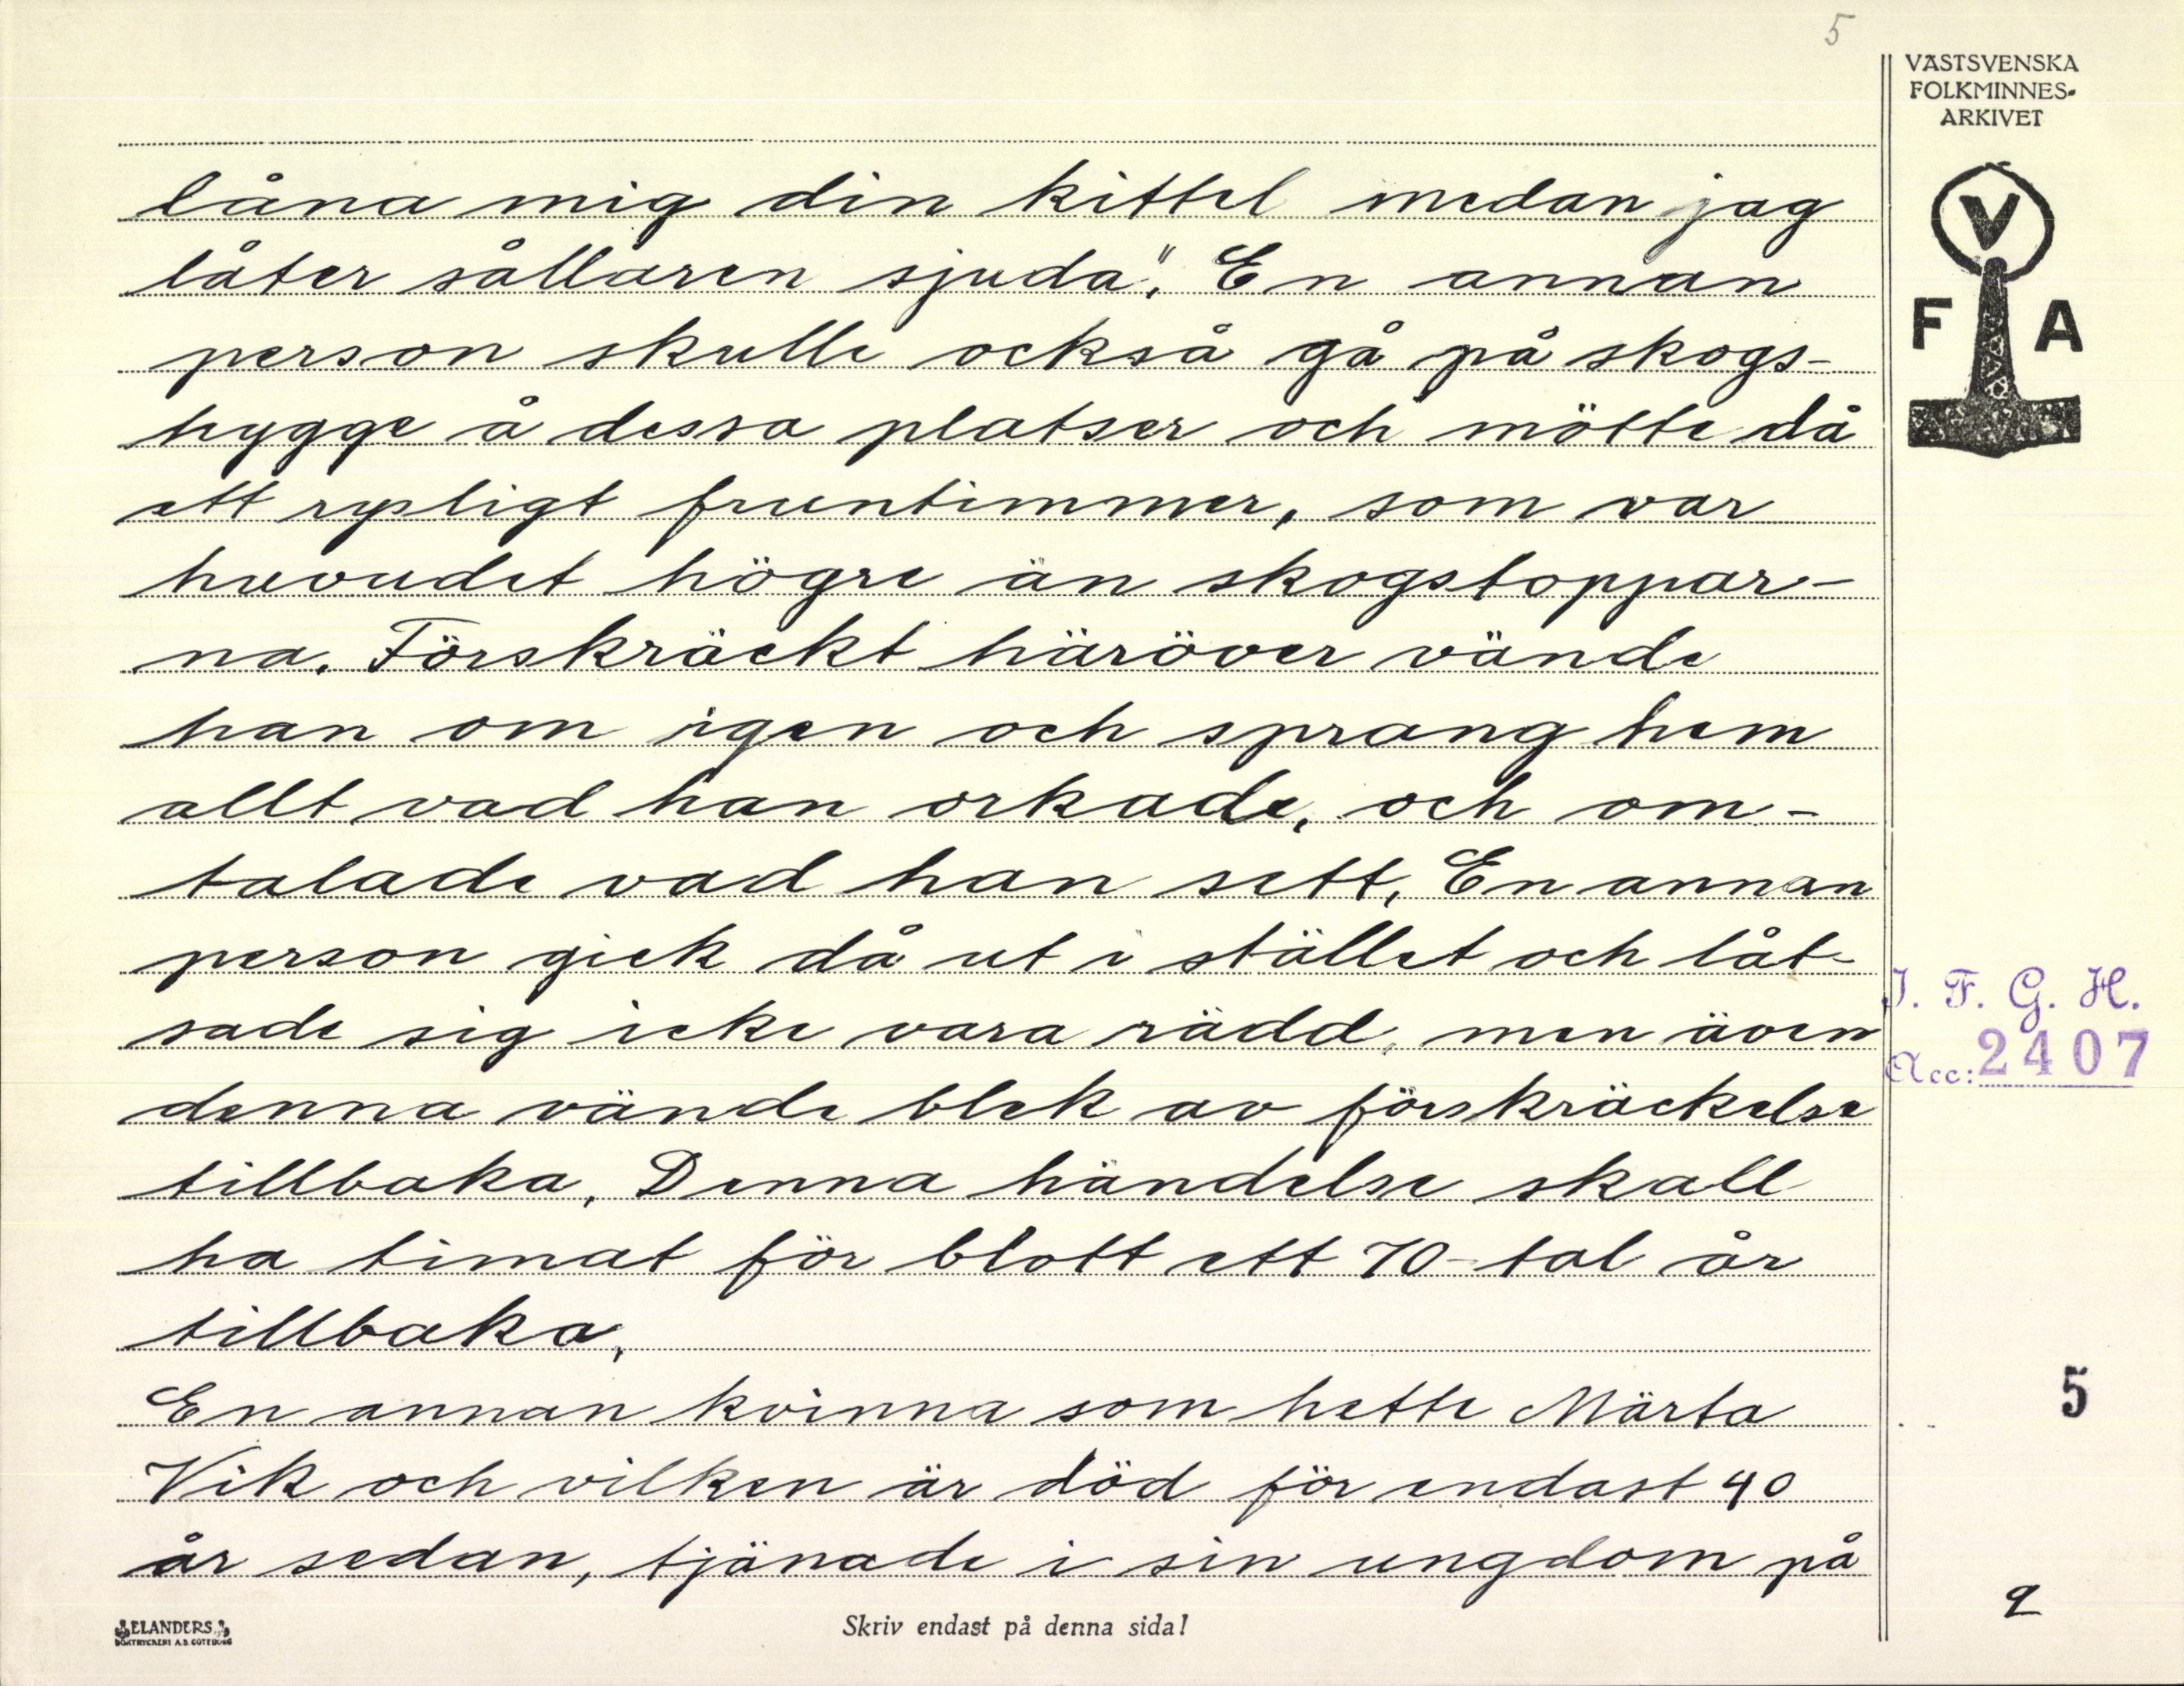 5
VÄSTSVENSKA
FOLKMINNES-
ARKIVET
V
F A
låna mig din kittel medan jag
låter sållaren sjuda". En annan
person skulle också gå på skogs-
hygge å dessa platser och mötte då
ett rysligt fruntimmer, som var
huvudet högre än skogstoppar-
na. Förskräckt häröver vände
han om igen och sprang hem
allt vad han orkade, och om-
talade vad han sett. En annan
person gick då ut i stället och låt-
sade sig icke vara rädd, men även
denna vände blek av förskräckelse
tillbaka. Denna händelse skall
ha timat för blott ett 70-tal år
tillbaka.
En annan kvinna som hette Märta
Vik och vilken är död för endast 40
år sedan, tjänade i sin ungdom på
I. F. G. H.
Acc: 2407
5
2
ELANDERS
BOKTRYCKERI A.B. GÖTEBORG
Skriv endast på denna sida!